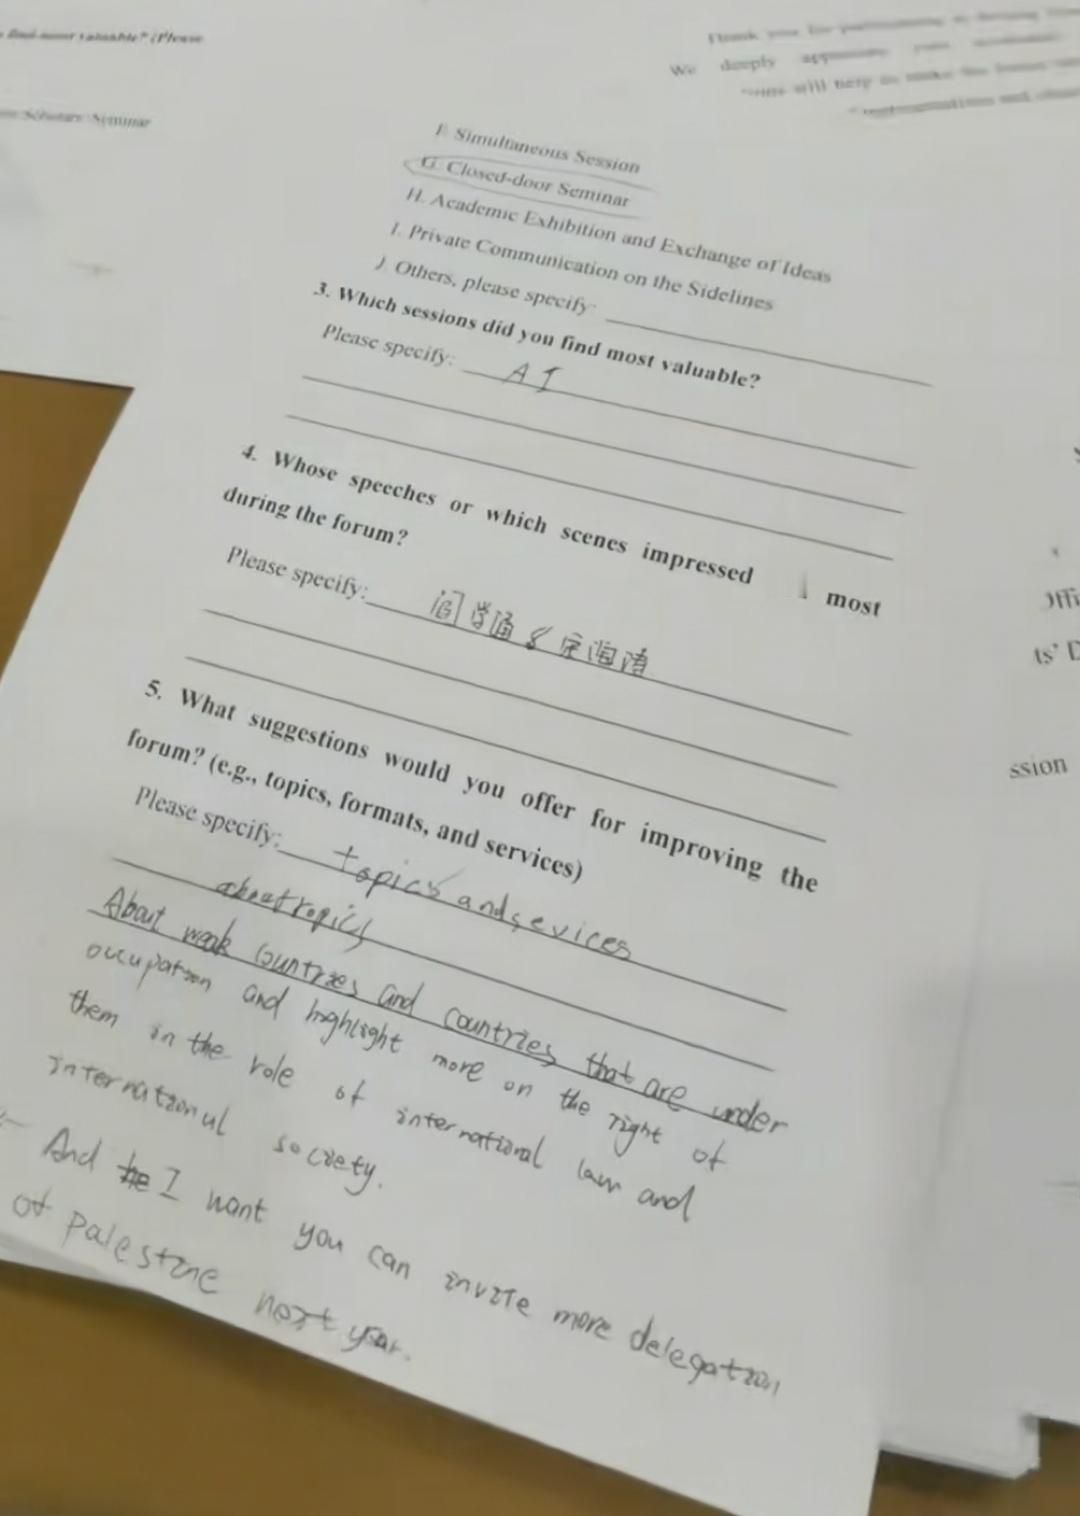 Scholars Seminar
We deeply
F. Simultaneous Session
G. Closed-door Seminar
H. Academic Exhibition and Exchange of Ideas
I. Private Communication on the Sidelines
J. Others, please specify:
3. Which sessions did you find most valuable?
Please specify: AI
4. Whose speeches or which scenes impressed most
during the forum?
Please specify: 阎学通 &
5. What suggestions would you offer for improving the
forum? (e.g., topics, formats, and services)
Please specify: topics and sevices
about topics
About weak countries and countries that are under
occupation and highlight more on the right of
them in the role of international law and
international society.
And I want you can invite more delegation
of palestine next year.
ssion